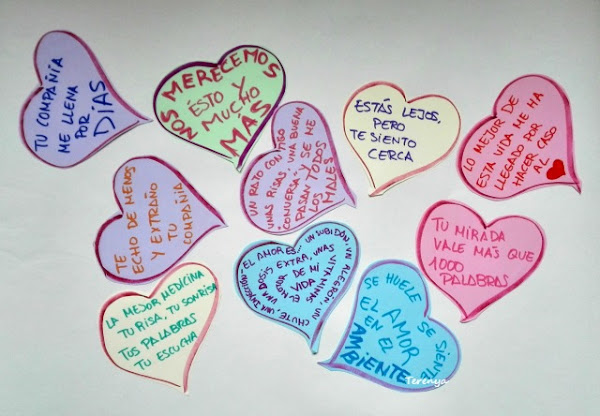 TU COMPAÑIA
ME LLENA
POR
DIAS
NOS MERECEMOS
ÉSTO Y
MUCHO
MAS
UN RATO CONTIGO
UNAS RISAS, UNA BUENA
CONVERSA, Y SE ME
PASAN TODOS
LOS
MALES
ESTÁS LEJOS,
PERO
TE SIENTO
CERCA
LO MEJOR DE
ESTA VIDA ME HA
LLEGADO POR
HACER CASO
AL
TE
ECHO DE MENOS
Y EXTRAÑO
TU
COMPAÑIA
TU MIRADA
VALE MÁS QUE
1000
PALABRAS
LA MEJOR MEDICINA
TU RISA, TU SONRISA
TUS PALABRAS
TU ESCUCHA
EL AMOR ES... UN SUBIDÓN, UN ALEGRON, UN CHUTE, UNA INYECCIÓN,
UNA DOSIS EXTRA, UNAS VITAMINAS
EL MOTOR DE MI
VIDA
SE HUELE SE SIENTE
EL AMOR
EN EL
AMBIENTE
Terenya